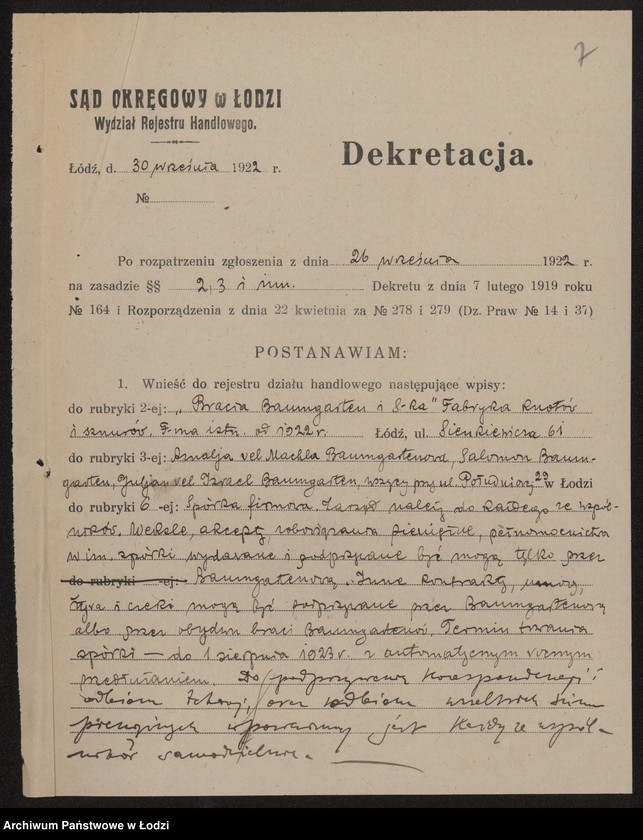 7
SĄD OKRĘGOWY w ŁODZI
Wydział Rejestru Handlowego.
Łódź, d. 30 września 1922 r.
№
Dekretacja.
Po rozpatrzeniu zgłoszenia z dnia 26 września 1922 r.
na zasadzie §§ 2, 3 i inn. Dekretu z dnia 7 lutego 1919 roku
№ 164 i Rozporządzenia z dnia 22 kwietnia za № 278 i 279 (Dz. Praw № 14 i 37)
POSTANAWIAM:
1. Wnieść do rejestru działu handlowego następujące wpisy:
do rubryki 2-ej: „Bracia Baumgarten i S-ka" Fabryka knotów
i sznurów. F-ma istn. od 1922 r. Łódź, ul. Sienkiewicza 61
do rubryki 3-ej: Amalja vel Machla Baumgartenowa, Salomon Baum-
garten, Juljan vel Izrael Baumgarten, wszyscy przy ul. Południowej 29 w Łodzi
do rubryki 6-ej: Spółka firmowa. Zarząd należy do każdego ze wspól-
ników. Weksle, akcepty, zobowiązania pieniężne, pełnomocnictwa
w im. spółki wydawane i podpisywane być mogą tylko przez
do rubryki -ej: Baumgartenową. Inne kontrakty, umowy,
żyra i czeki mogą być podpisywane przez Baumgartenową
albo przez obydwu braci Baumgartenów. Termin trwania
spółki — do 1 sierpnia 1923 r. z automatycznym rocznym
przedłużaniem. Do podpisywania korespondencji i
odbioru takowej, oraz odbioru wszelkich sum
pieniężnych upoważniony jest każdy ze wspól-
ników samodzielnie.
Archiwum Państwowe w Łodzi